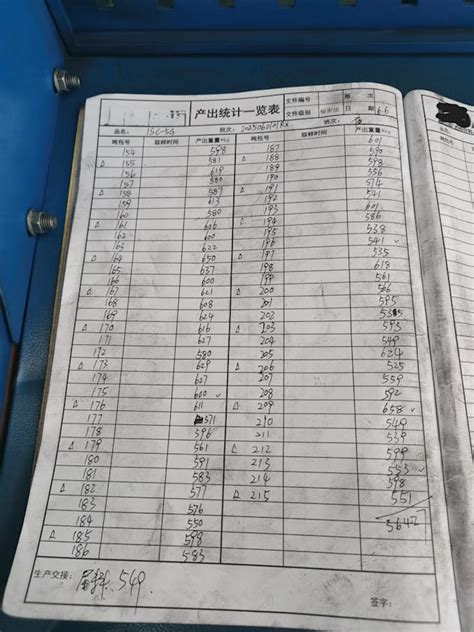 产出统计一览表
文件编号 版次
文件级别 秘密级 日期 6.6
品名: JSC-5G 批次: 20250601RX 班次: 夜
吨包号 取样时间 产出重量Kg 吨包号 取样时间 产出重量Kg
154 598 187 601
△ 155 581 △ 188 598
156 619 189 598
157 580 190 556
△ 158 587 △ 191 574
159 613 192 541
160 580 193 601
△ 161 606 △ 194 586
162 600 195 538
163 622 196 541
△ 164 650 △ 197 535
165 637 198 618
166 600 199 561
△ 167 621 △ 200 566
168 608 201 595
169 624 202 535
△ 170 616 △ 203 593
171 627 204 549
172 580 205 624
△ 173 629 △ 206 525
174 627 207 559
175 600 208 592
△ 176 611 △ 209 658
177 571 210 549
178 596 211 539
△ 179 561 △ 212 599
180 591 213 553
181 583 214 598
△ 182 577 △ 215 551
183 576
184 550
△ 185 598
186 583
生产交接: 549 签字: